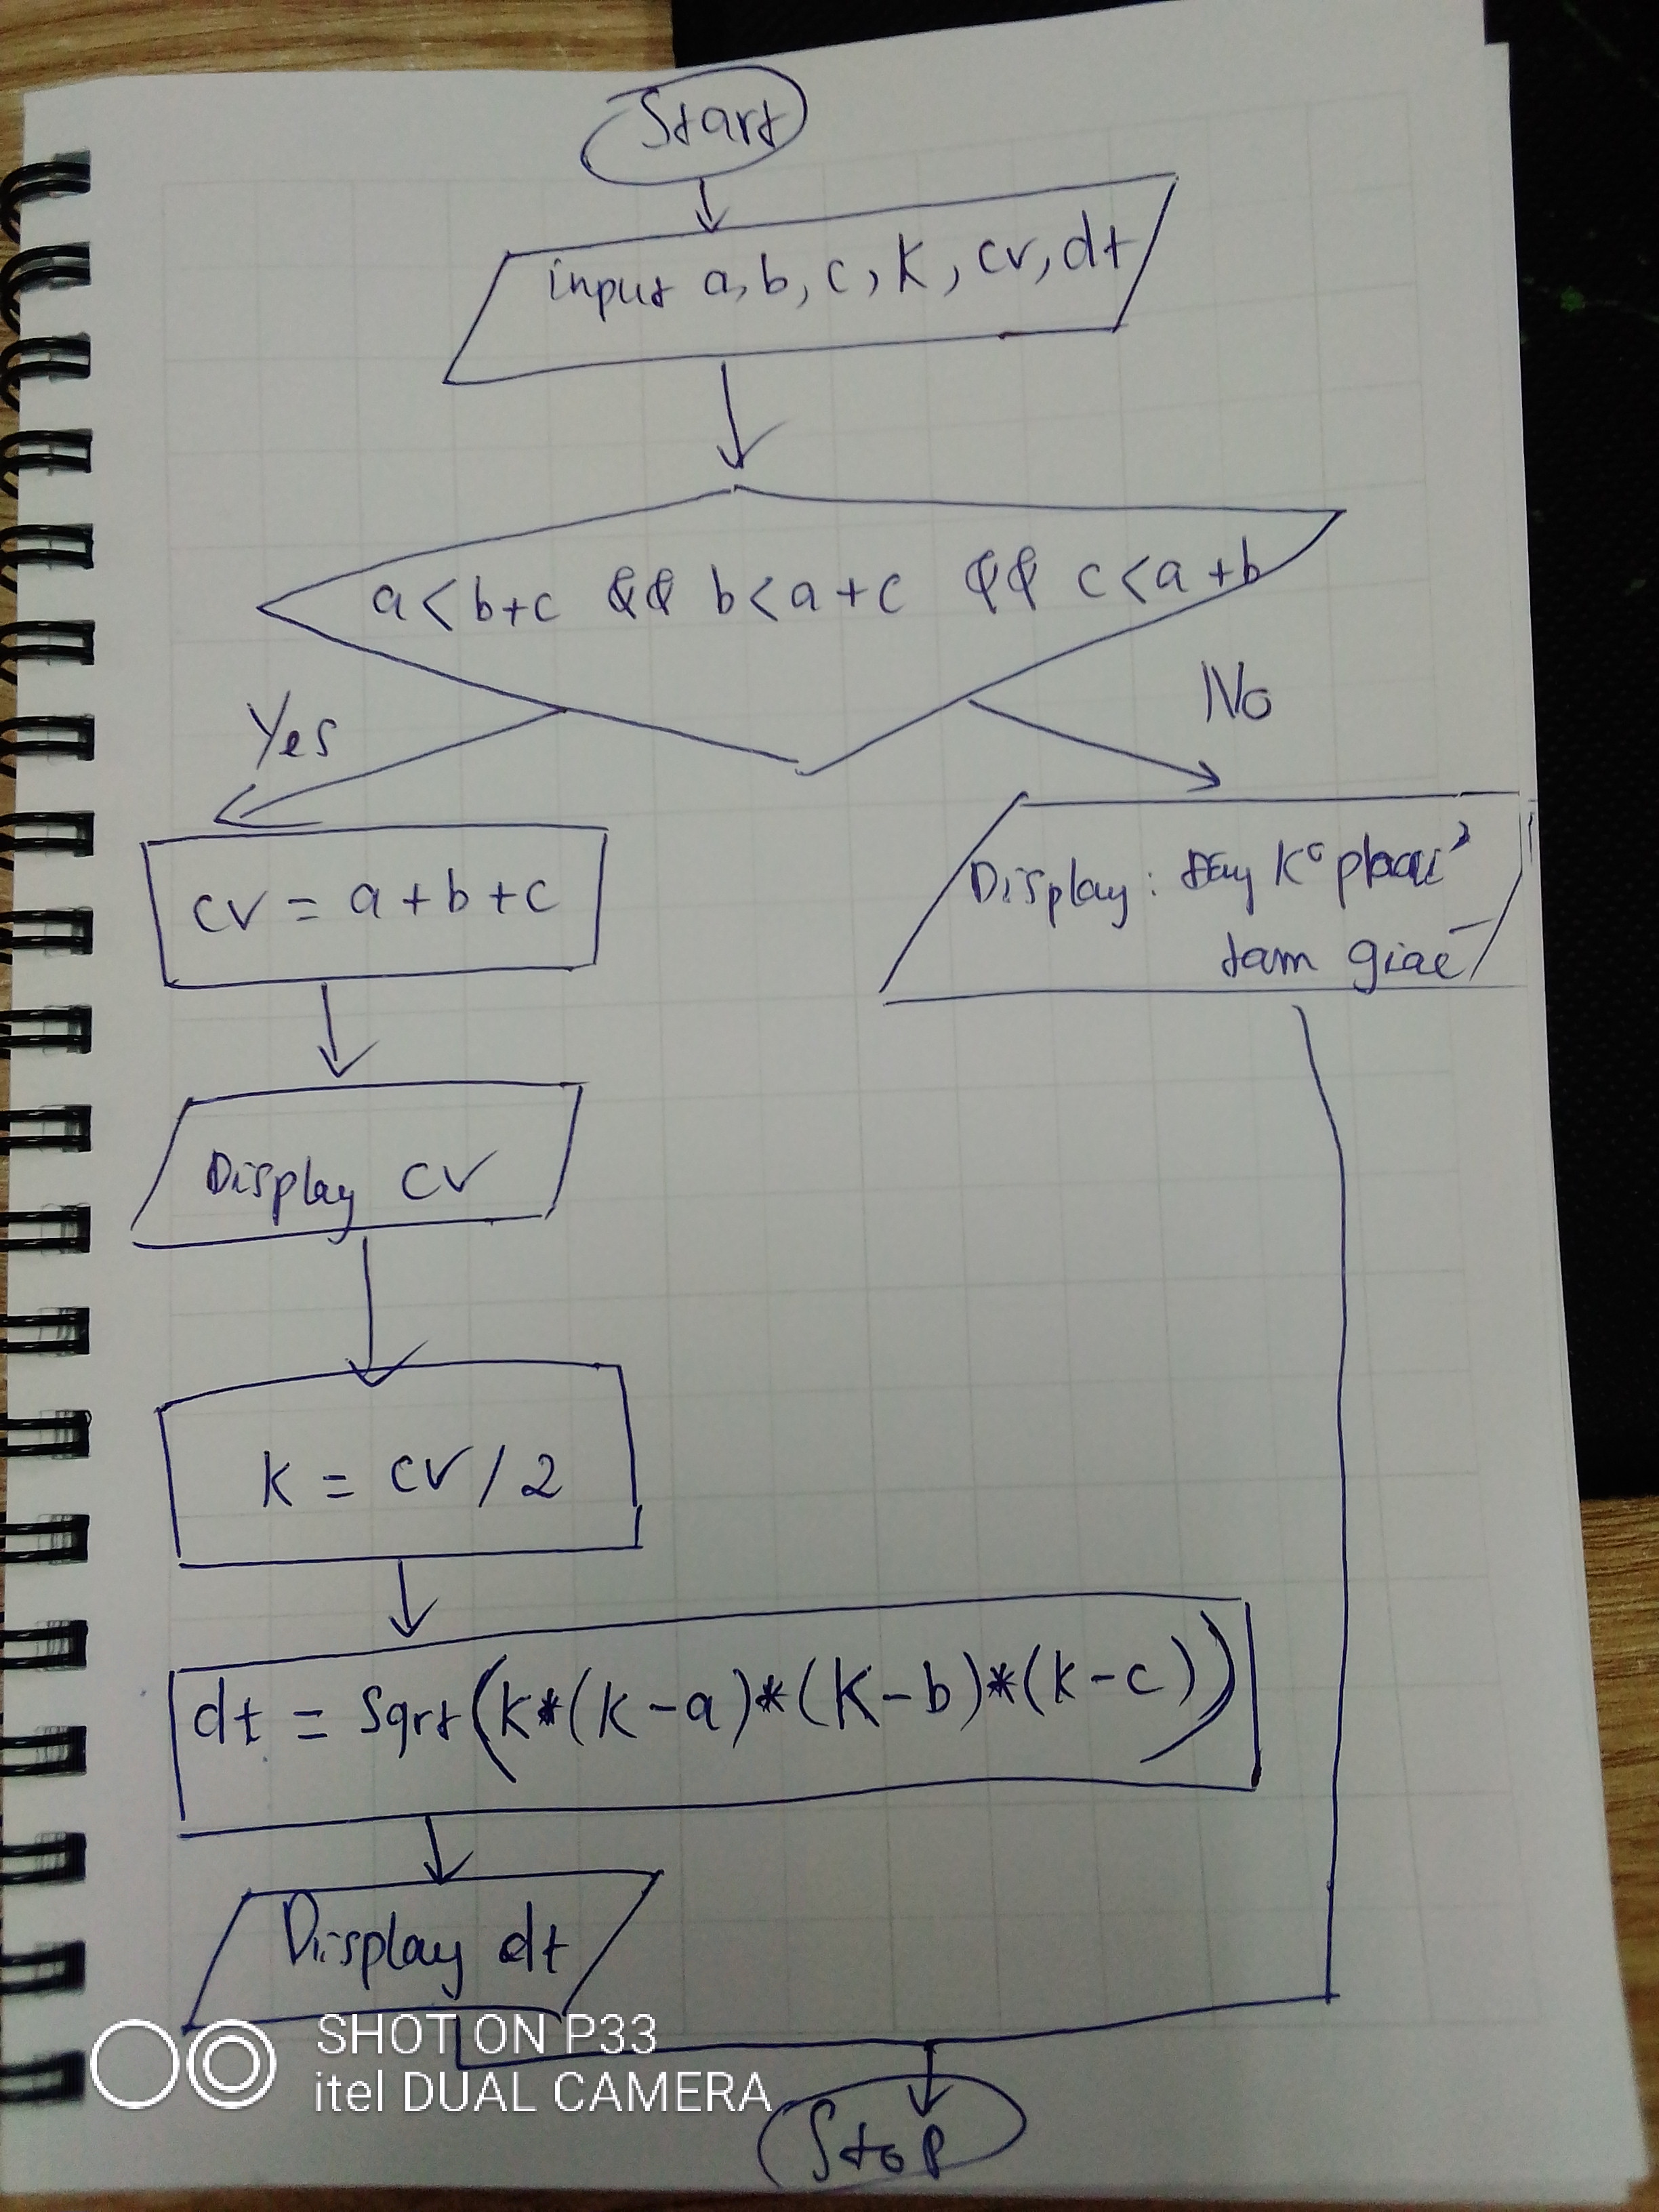 Start
input a, b, c, K, cv, dt
a < b+c && b < a+c && c < a+b
Yes
No
cv = a+b+c
Display: Đây K° phải
tam giác
Display cv
K = cv / 2
dt = Sqrt(k*(k-a)*(k-b)*(k-c))
Display dt
Stop
SHOT ON P33
itel DUAL CAMERA